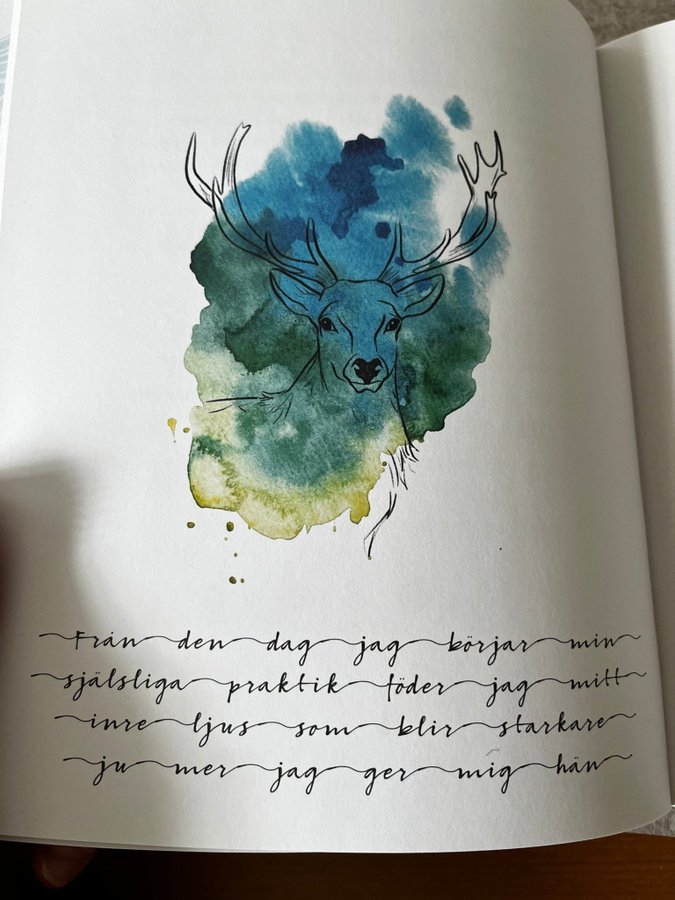 Från den dag jag börjar min
själsliga praktik föder jag mitt
inre ljus som blir starkare
ju mer jag ger mig hän